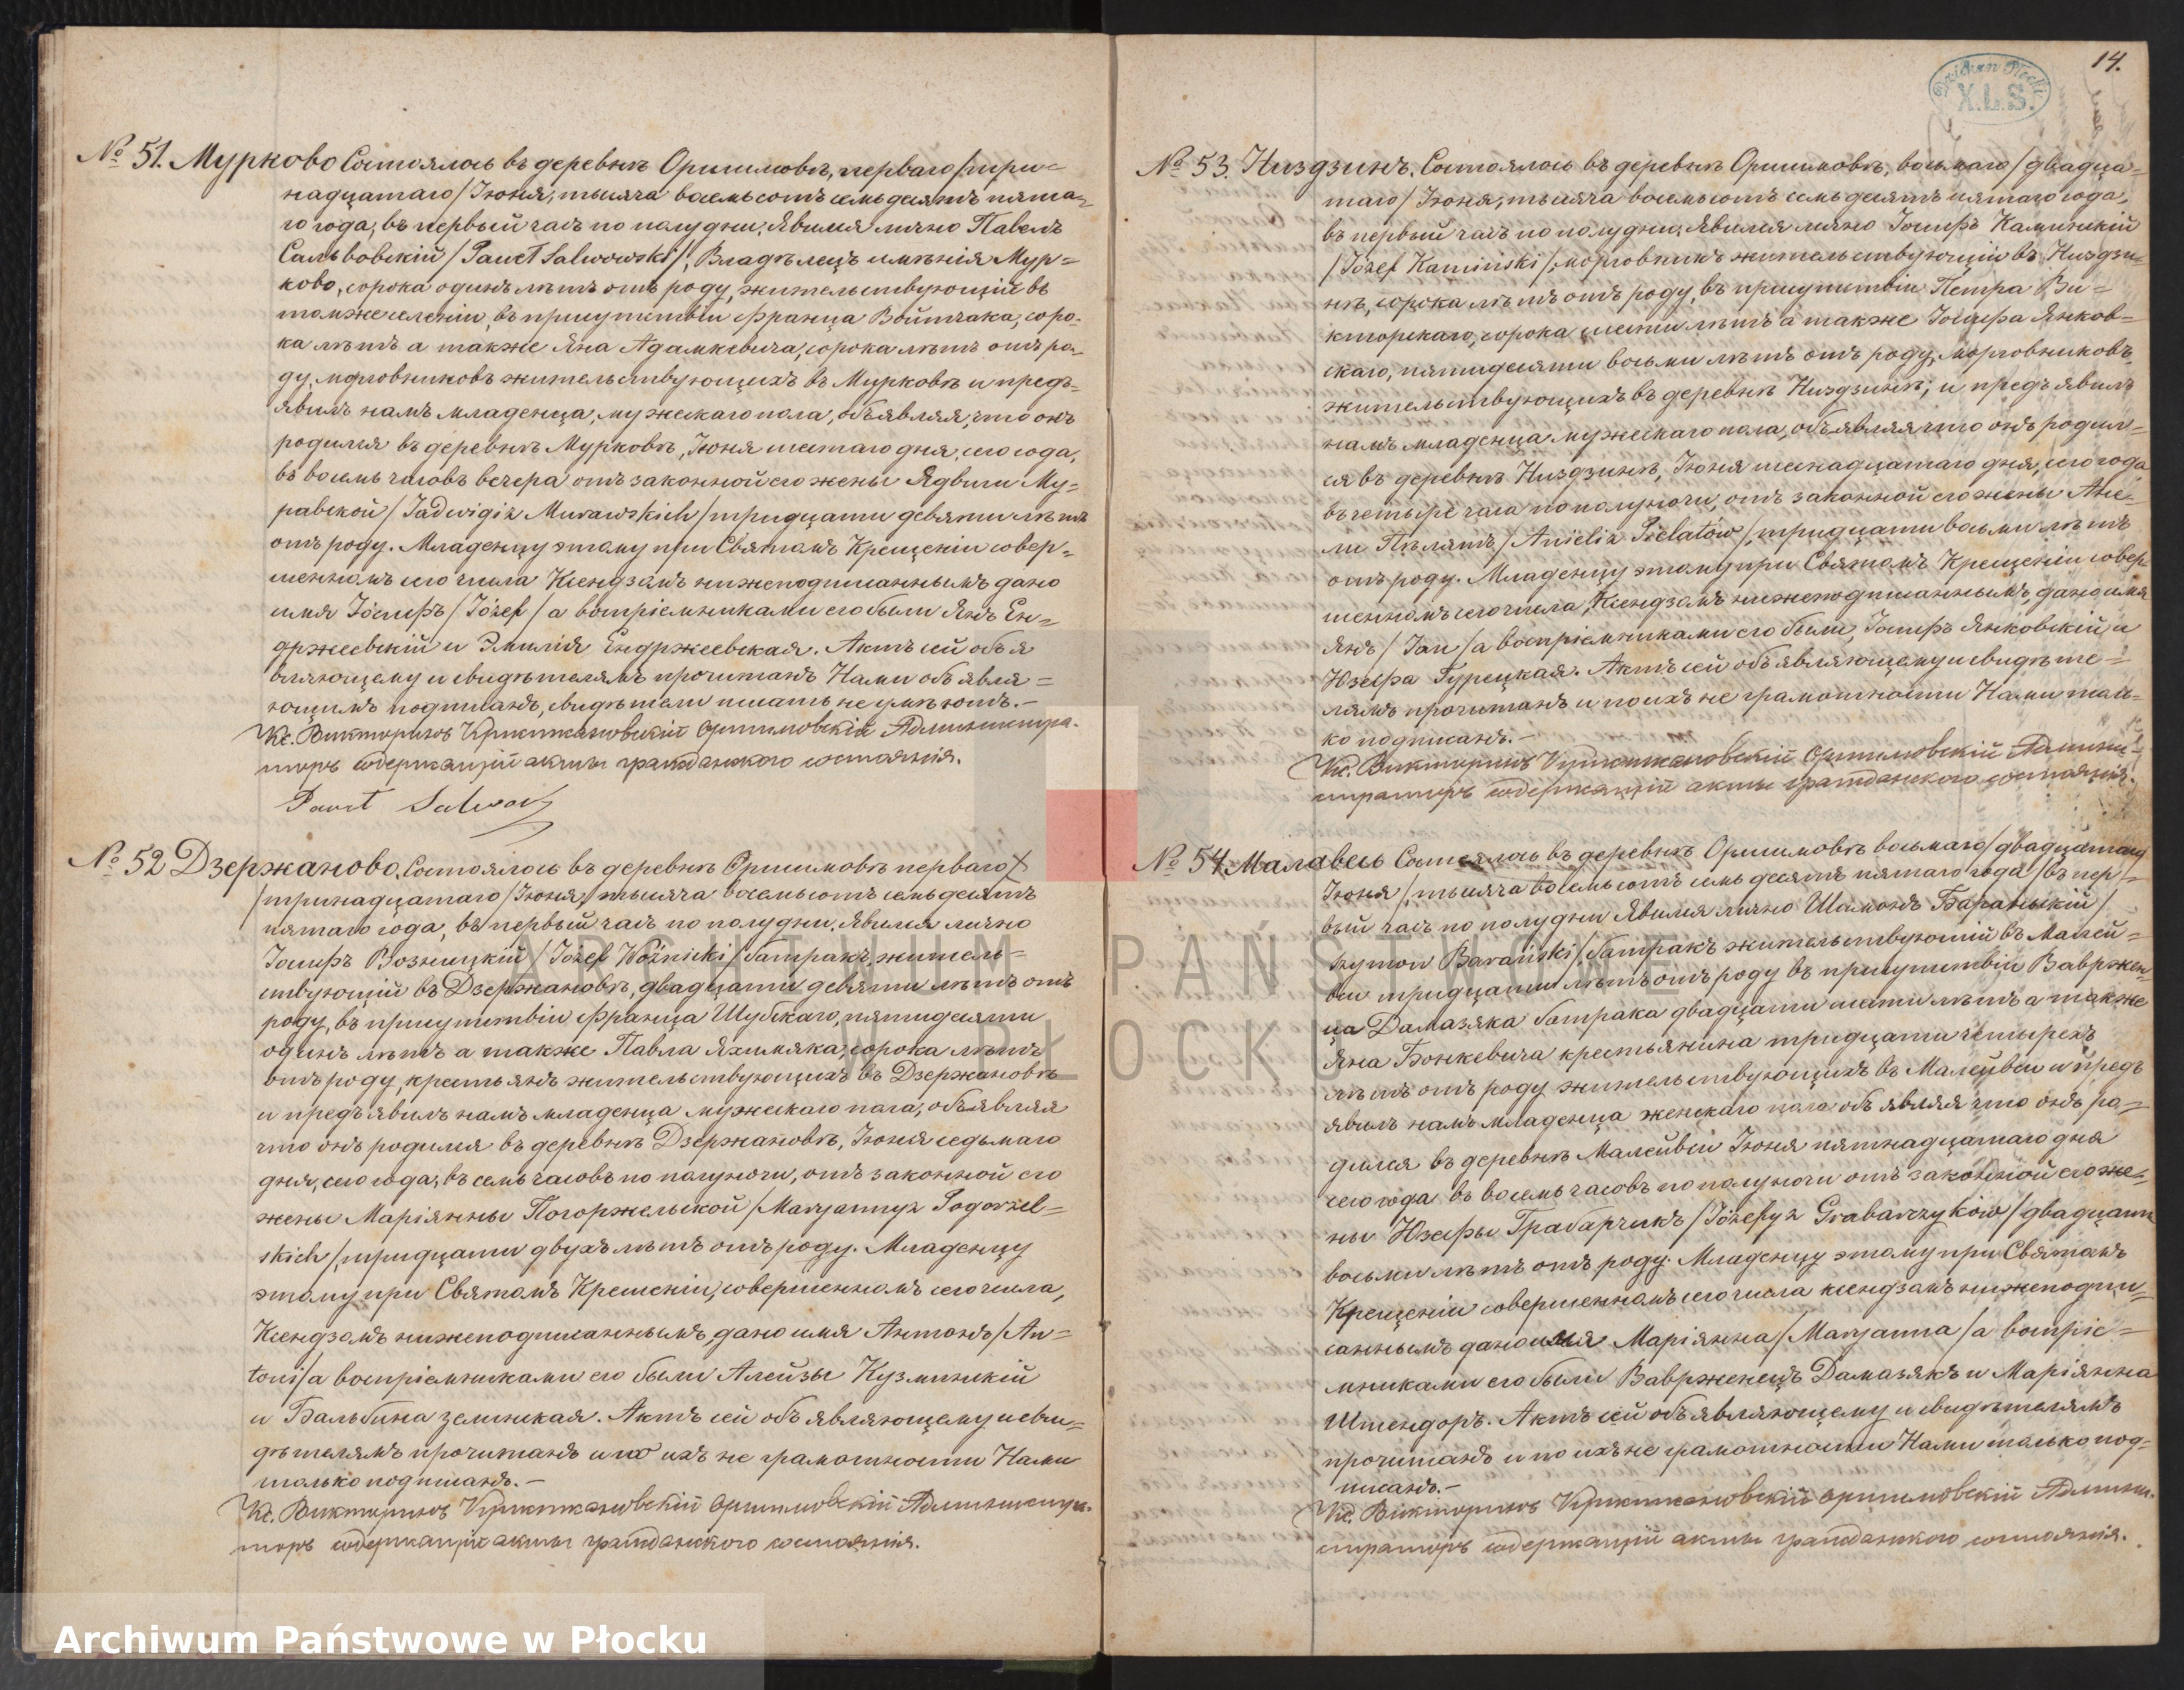 № 51. Мурково Состоялось въ деревнѣ Оршимовѣ, перваго /три=
надцатаго/ Іюня, тысяча восемьсотъ семьдесятъ пята=
го года, въ первый часъ по полудни. Явился лично Павелъ
Сальвовскій /Paweł Salwowski/, Владѣлецъ имѣнія Мур=
ково, сорока одинъ лѣтъ отъ роду, жительствующій въ
томже селеніи, въ присутствіи Франца Войтчака, соро-
ка лѣтъ а также Яна Адамкевича, сорока лѣтъ отъ ро-
ду, морговниковъ жительствующихъ въ Мурковѣ и предъ-
явилъ намъ младенца, мужескаго пола, объявляя, что онъ
родился въ деревнѣ Мурковѣ, Іюня шестаго дня, сего года,
въ восемь часовъ вечера отъ законной его жены Ядвиги Му=
равской /Jadwigi z Murawskich/ тридцати девяти лѣтъ
отъ роду. Младенцу этому при Святомъ Крещеніи совер=
шенномъ сего числа Ксендзомъ нижеподписаннымъ дано
имя Іосифъ /Józef/ а воспріемниками его были Янъ Ен=
држеевскій и Эмилія Ендржеевская. Актъ сей объя
вляющему и свидѣтелямъ прочитанъ Нами объявля=
ющимъ подписанъ, свидѣтели писать не умѣютъ.—
Кс. Викторинъ Оршимовскій Администра-
торъ содержащій акты гражданского состоянія.
Paweł
№ 52 Дзержаново. Состоялось въ деревнѣ Оршимовѣ перваго
/тринадцатаго/ Іюня, тысяча восемьсотъ семьдесятъ
пятаго года, въ первый часъ по полудни. Явился лично
Іосифъ Возницкій /Józef Woźnicki/ батракъ, житель=
ствующій въ Дзержановѣ, двадцати девяти лѣтъ отъ
роду, въ присутствіи Франца Шубскаго, пятидесяти
одинъ лѣтъ а также Павла Яхимяка, сорока лѣтъ
отъ роду, крестьянъ жительствующихъ въ Дзержановѣ
и предъявилъ намъ младенца мужескаго пола, объявляя
что онъ родился въ деревнѣ Дзержановѣ, Іюня седьмаго
дня, сего года, въ семь часовъ по полуночи, отъ законной его
жены Маріянны Погоржельской /Maryanny z Pogorzel=
skich/, тридцати двухъ лѣтъ отъ роду. Младенцу
этому при Святомъ Крещеніи, совершенномъ сего числа,
Ксендзомъ нижеподписаннымъ, дано имя Антонъ /An=
toni/ а воспріемниками его были Алейзы Кузминскій
и Бальбина Зелинская. Актъ сей объявляющему и сви=
дѣтелямъ прочитанъ и по ихъ не грамотности Нами
только подписанъ.—
Кс. Викторинъ Оршимовскій Администра-
торъ содержащій акты гражданского состоянія.
14.
Dziekan Płocki
X.L.S.
№ 53. Низдзинъ. Состоялось въ деревнѣ Оршимовѣ, восьмаго /двадца=
таго/ Іюня, тысяча восемьсотъ семьдесятъ пятаго года,
въ первый часъ по полудни, Явился лично Іосифъ Каминскій
/Józef Kamiński/, морговникъ жительствующій въ Низдзи-
нѣ, сорока лѣтъ отъ роду, въ присутствіи Петра Ви=
кторскаго, сорока шести лѣтъ а также Іосифа Янков=
скаго, пятидесяти восьми лѣтъ отъ роду, морговниковъ
жительствующихъ въ деревнѣ Низдзинѣ, и предъявилъ
намъ младенца мужескаго пола, объявляя что онъ родил=
ся въ деревнѣ Низдзинѣ, Іюня шенадцатаго дня, сего года
въ четыре часа по полуночи, отъ законной его жены Ане-
ли Пѣлятъ /Anieli z Pielatów/, тридцати восьми лѣтъ
отъ роду. Младенцу этому при Святомъ Крещеніи совер-
шенномъ сего числа, Ксендзомъ нижеподписаннымъ, дано имя
Янъ /Jan/ а воспріемниками его были, Іосифъ Янковскій и
Юзефа Гурецкая. Актъ сей объявляющему и свидѣте=
лямъ прочитанъ и по ихъ не грамотности Нами толь-
ко подписанъ.—
Кс. Викторинъ Оршимовскій Админи-
страторъ содержащій акты гражданского состоянія.
№ 54. Малавесь Состоялось въ деревнѣ Оршимовѣ восьмаго /двадцатаго
Іюня/, тысяча восемьсотъ семьдесятъ пятаго года /въ пер=
вый часъ по полудни Явился лично Шимонъ Бараньскій /
Szymon Barański/, батракъ жительствующій въ Малей=
вси тридцати лѣтъ отъ роду въ присутствіи Вавржен-
ца Дамазяка батрака двадцати шести лѣтъ а также
Яна Бонкевича крестьянина тридцати четырехъ
лѣтъ отъ роду жительствующихъ въ Малейвси и предъ
явилъ намъ младенца женскаго пола объявляя что онъ ро=
дился въ деревнѣ Малейвси Іюня пятнадцатаго дня
сего года въ восемь часовъ по полуночи отъ законной его же=
ны Юзефы Грабарчикъ /Józefy z Grabarczyków/ двадцати
восьми лѣтъ отъ роду. Младенцу этому при Святомъ
Крещеніи совершенномъ сего числа ксендзомъ нижеподпи=
саннымъ дано имя Маріянна /Maryanna/ а воспріе=
мниками его были Вавржинецъ Дамазякъ и Маріянна
Штендоръ. Актъ сей объявляющему и свидѣтелямъ
прочитанъ и по ихъ не грамотности Нами только под=
писанъ.—
Кс. Викторинъ Оршимовскій Админи-
страторъ содержащій акты гражданского состоянія.
ARCHIWUM PAŃSTWOWE
W PŁOCKU
Archiwum Państwowe w Płocku